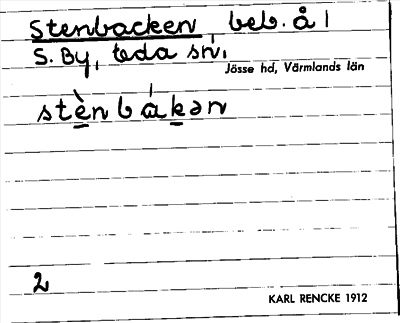 Stenbacken beb. å 1
S. By, Eda sn,
Jösse hd, Värmlands län
stènbákən
2
KARL RENCKE 1912